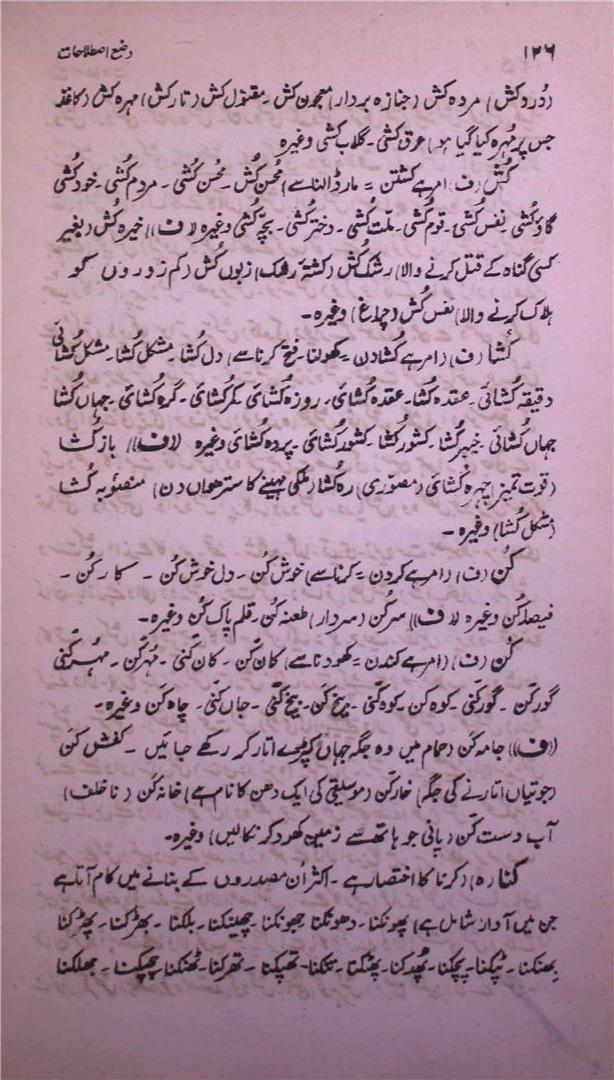 ۱۲۶
وضع اصطلاحات
(دُرد کش) مردہ کش (جنازہ بردار) معجون کش ۔ مفتول کش (تار کش) مہرہ کش (کاغذ
جس پر مُہرہ کیا گیا ہو) عرق کشی ۔ گلاب کشی وغیرہ
کُش (ف) (امر ہے کشتن = مار ڈالنا سے) محُسن کُش ۔ محُسن کُشی ۔ مردم کُشی ۔ خود کُشی
گاؤ کُشی ۔ نفس کُشی ۔ قوم کُشی ۔ ملّت کُشی ۔ دختر کُشی ۔ بچّہ کُشی وغیرہ ((ف)) خیرہ کُش (بغیر
کسی گناہ کے قتل کرنے والا) رشک کُش (کشتۂ رشک) زبوں کُش (کم زوروں کو
ہلاک کرنے والا) نفس کُش (چراغ) وغیرہ ۔
کُشا (ف) (امر ہے کُشادن = کھولنا ۔ فتح کرنا سے) دل کُشا ۔ مشکل کُشا ۔ مشکل کُشائی
دقیقہ کُشائی ۔ عقدہ کُشا ۔ عقدہ کُشائی ۔ روزہ کُشائی ۔ کمر کُشائی ۔ گرہ کُشائی ۔ جہاں کُشا
جہاں کُشائی ۔ خیبر کُشا ۔ کشور کُشا ۔ کشور کُشائی ۔ پردہ کُشائی وغیرہ ((ف)) باز کُشا
(قوت تمیز) چہرہ کُشائی (مصوّری) رہ کُشا (ملکی مہینے کا سترھواں دن) منصوبہ کُشا
(مشکل کُشا) وغیرہ ۔
کُن (ف) (امر ہے کردن = کرنا سے) خوش کُن ۔ دل خوش کُن ۔ کار کُن ۔
فیصلہ کُن وغیرہ ((ف)) سرکُن (سردار) طعنہ کُن ۔ قلم پاک کُن وغیرہ ۔
کَن (ف) (امر ہے کندن = کھودنا سے) کان کَن ۔ کان کَنی ۔ مُہر کَن ۔ مُہر کَنی
گور کَن ۔ گور کَنی ۔ کوہ کن ۔ کوہ کَنی ۔ بیخ کَن ۔ بیخ کَنی ۔ جاں کَنی ۔ چاہ کَن وغیرہ ۔
((ف)) جامہ کَن (حمام میں وہ جگہ جہاں کپڑے اتار کر رکھے جائیں ۔ کفش کَن
(جوتیاں اتارنے کی جگہ) خار کَن (موسیقی کی ایک دھن کا نام ہے) خانہ کَن (ناخلف)
آب دست کَن (پانی جو ہاتھ سے زمین کھود کر نکالیں) وغیرہ ۔
کنا (ہ) (کرنا کا اختصار ہے ۔ اکثر اُن مصدروں کے بنانے میں کام آتا ہے
جن میں آواز شامل ہے) پھونکنا ۔ دھونکنا ۔ جھونکنا ۔ چھینکنا ۔ بلکنا ۔ بھڑکنا ۔ پھڑکنا
بھنکنا ۔ ٹپکنا ۔ پچکنا ۔ پھدکنا ۔ پھٹکنا ۔ تھپکنا ۔ تھرکنا ۔ ٹھنکنا ۔ جھلکنا